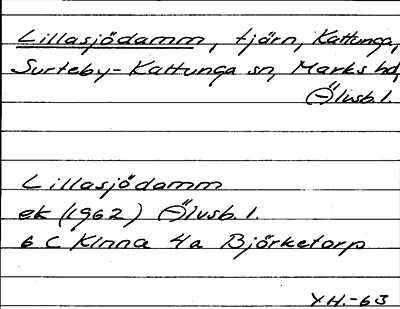 Lillasjödamm, tjärn, Kattunga,
Surteby-Kattunga sn, Marks hd,
Älvsb. l.
Lillasjödamm
ek (1962) Älvsb. l.
6 C Kinna 4a Björketorp
YH.-63